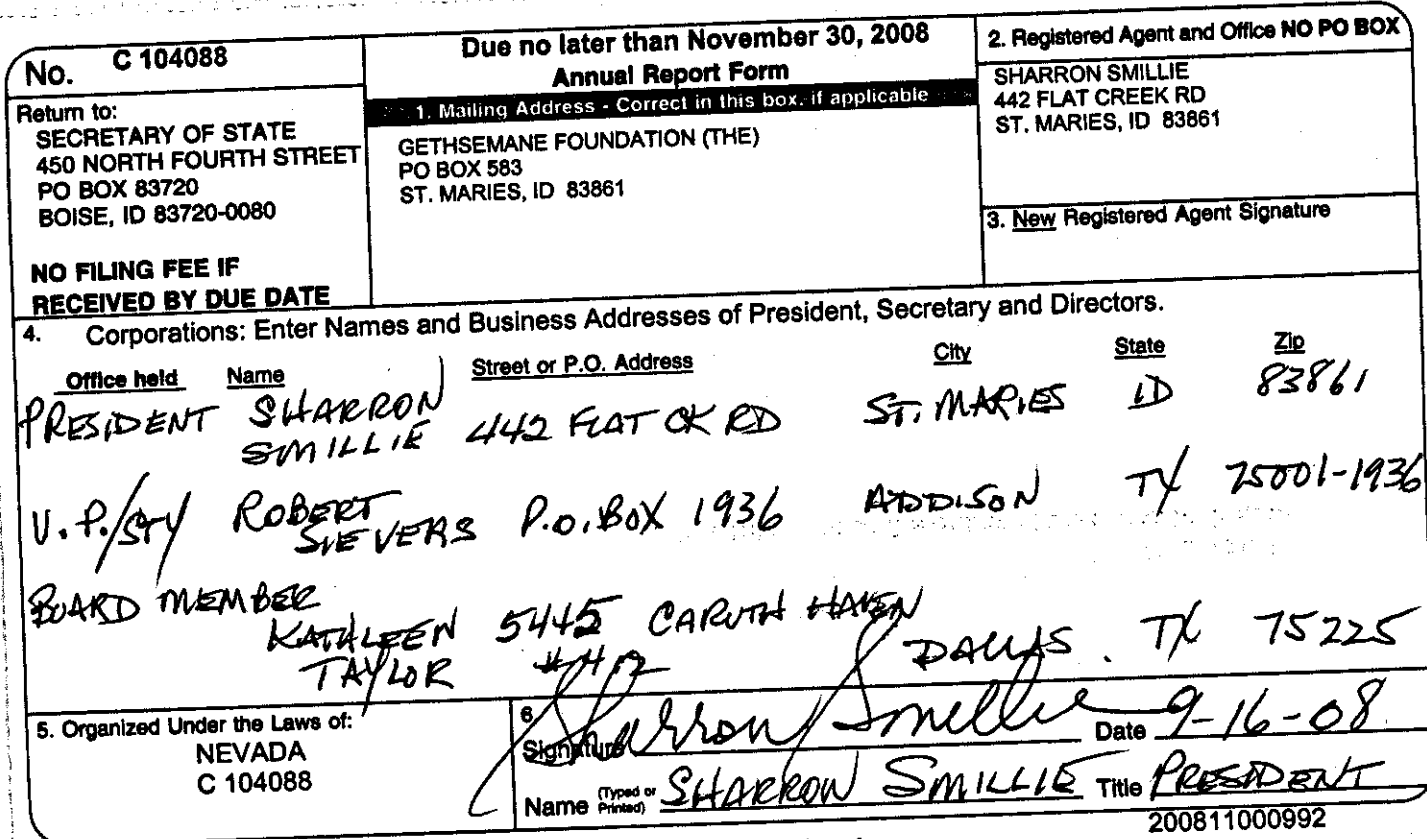 No. C 104088
Return to:
SECRETARY OF STATE
450 NORTH FOURTH STREET
PO BOX 83720
BOISE, ID 83720-0080
NO FILING FEE IF
RECEIVED BY DUE DATE
Due no later than November 30, 2008
Annual Report Form
1. Mailing Address - Correct in this box, if applicable
GETHSEMANE FOUNDATION (THE)
PO BOX 583
ST. MARIES, ID 83861
2. Registered Agent and Office NO PO BOX
SHARRON SMILLIE
442 FLAT CREEK RD
ST. MARIES, ID 83861
3. New Registered Agent Signature
4. Corporations: Enter Names and Business Addresses of President, Secretary and Directors.
Office held Name Street or P.O. Address City State Zip
PRESIDENT SHARRON SMILLIE 442 FLAT CK RD ST. MARIES ID 83861
V.P./STY ROBERT SIEVERS P.O. BOX 1936 ADDISON TX 75001-1936
BOARD MEMBER
KATHLEEN TAYLOR 5445 CARUTH HAVEN DALLAS. TX 75225
5. Organized Under the Laws of:
NEVADA
C 104088
6
Signature Sharron Smillie Date 9-16-08
Name (Typed or Printed) SHARRON SMILLIE Title PRESIDENT
200811000992